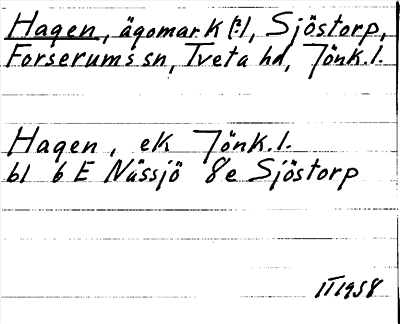 Hagen, ägomark [?], Sjöstorp,
Forserums sn, Tveta hd, Jönk.l.
Hagen, ek. Jönk.l.
bl 6 E Nässjö 8e Sjöstorp
II 1958